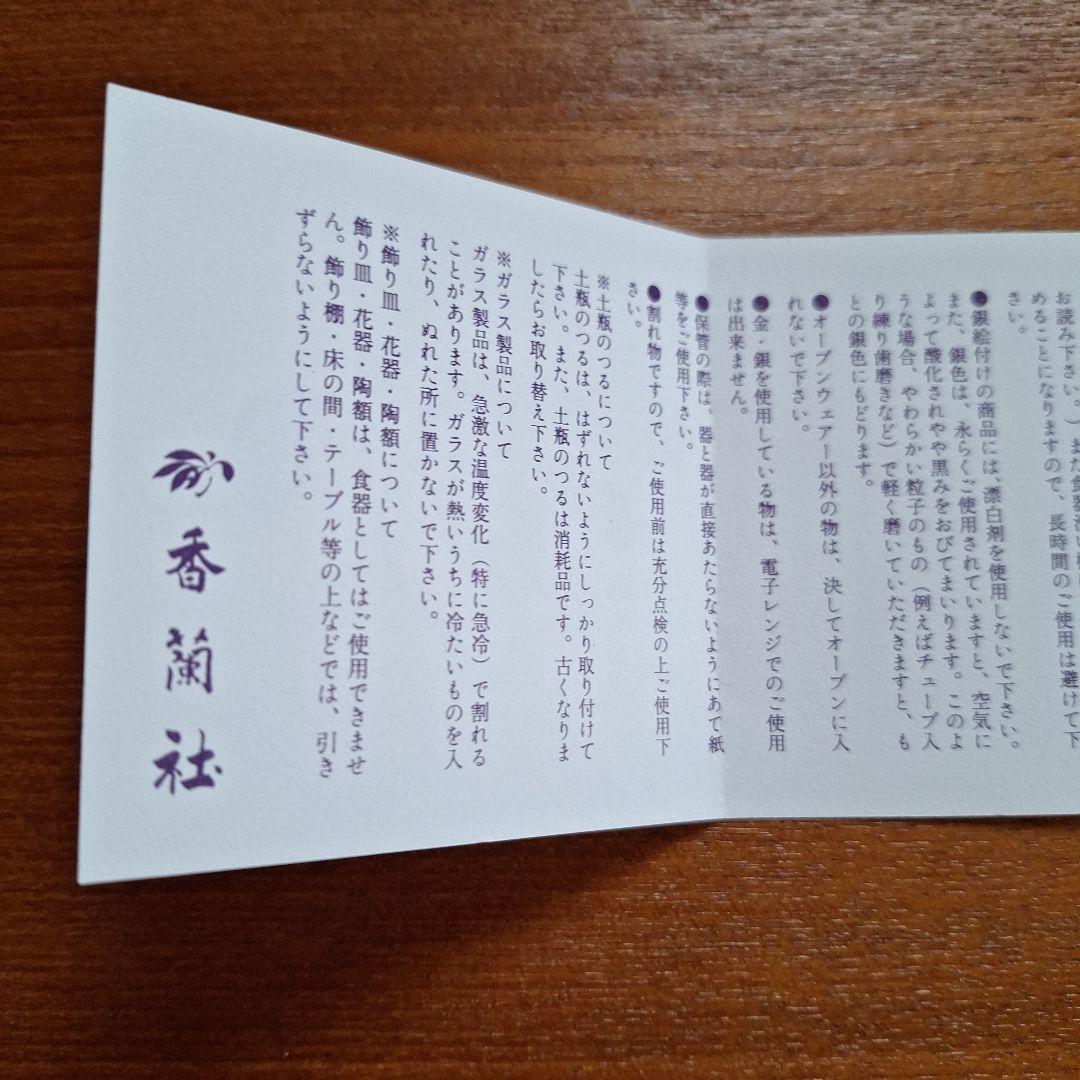 お読み下さい。）また食器洗い機
めることになりますので、長時間のご使用は避けて下
さい。
●銀絵付けの商品には、漂白剤を使用しないで下さい。
また、銀色は、永らくご使用されていますと、空気に
よって酸化されやや黒みをおびてまいります。このよ
うな場合、やわらかい粒子のもの（例えばチューブ入
り練り歯磨きなど）で軽く磨いていただきますと、も
との銀色にもどります。
●オーブンウェアー以外の物は、決してオーブンに入
れないで下さい。
●金・銀を使用している物は、電子レンジでのご使用
は出来ません。
●保管の際は、器と器が直接あたらないようにあて紙
等をご使用下さい。
●割れ物ですので、ご使用前は充分点検の上ご使用下
さい。
※土瓶のつるについて
土瓶のつるは、はずれないようにしっかり取り付けて
下さい。また、土瓶のつるは消耗品です。古くなりま
したらお取り替え下さい。
※ガラス製品について
ガラス製品は、急激な温度変化（特に急冷）で割れる
ことがあります。ガラスが熱いうちに冷たいものを入
れたり、ぬれた所に置かないで下さい。
※飾り皿・花器・陶額について
飾り皿・花器・陶額は、食器としてはご使用できませ
ん。飾り棚・床の間・テーブル等の上などでは、引き
ずらないようにして下さい。
香蘭社